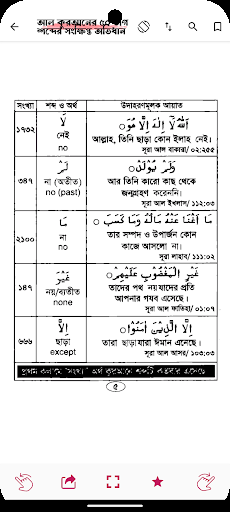 আল কুরআনের ৫০ ভাগ
শব্দের সংক্ষিপ্ত অভিধান
সংখ্যা শব্দ ও অর্থ উদাহরণমূলক আয়াত
১৭৩২ لَا নেই no
اَللّٰهُ لَآ اِلٰهَ اِلَّا هُوَ
আল্লাহ, তিনি ছাড়া কোন ইলাহ নেই।
সূরা আল বাকারা/ ০২:২৫৫
৩৪৭ لَمْ না (অতীত) no (past)
وَلَمْ يُوْلَدْ
আর তিনি কারো কাছ থেকে
জন্মগ্রহণ করেননি।
সূরা আল ইখলাস/ ১১২:০৩
২১০০ مَا না no
مَا اَغْنٰى عَنْهُ مَالُهٗ وَمَا كَسَبَ
তার সম্পদ ও উপার্জন কোন
কাজে আসলো না।
সূরা লাহাব/ ১১১:০২
১৪৭ غَيْرَ নয়/ব্যতীত none
غَيْرِ الْمَغْضُوْبِ عَلَيْهِمْ
তাদের পথ নয় যাদের প্রতি
আপনার গযব এসেছে।
সূরা আল ফাতিহা/ ০১:০৭
৬৬৬ اِلَّا ছাড়া except
اِلَّا الَّذِيْنَ اٰمَنُوْا
তারা ছাড়া যারা ঈমান এনেছে।
সূরা আল আসর/ ১০৩:০৩
প্রথম কলামে "সংখ্যা" অর্থ কুরআনে শব্দটি কতবার এসেছে
৫